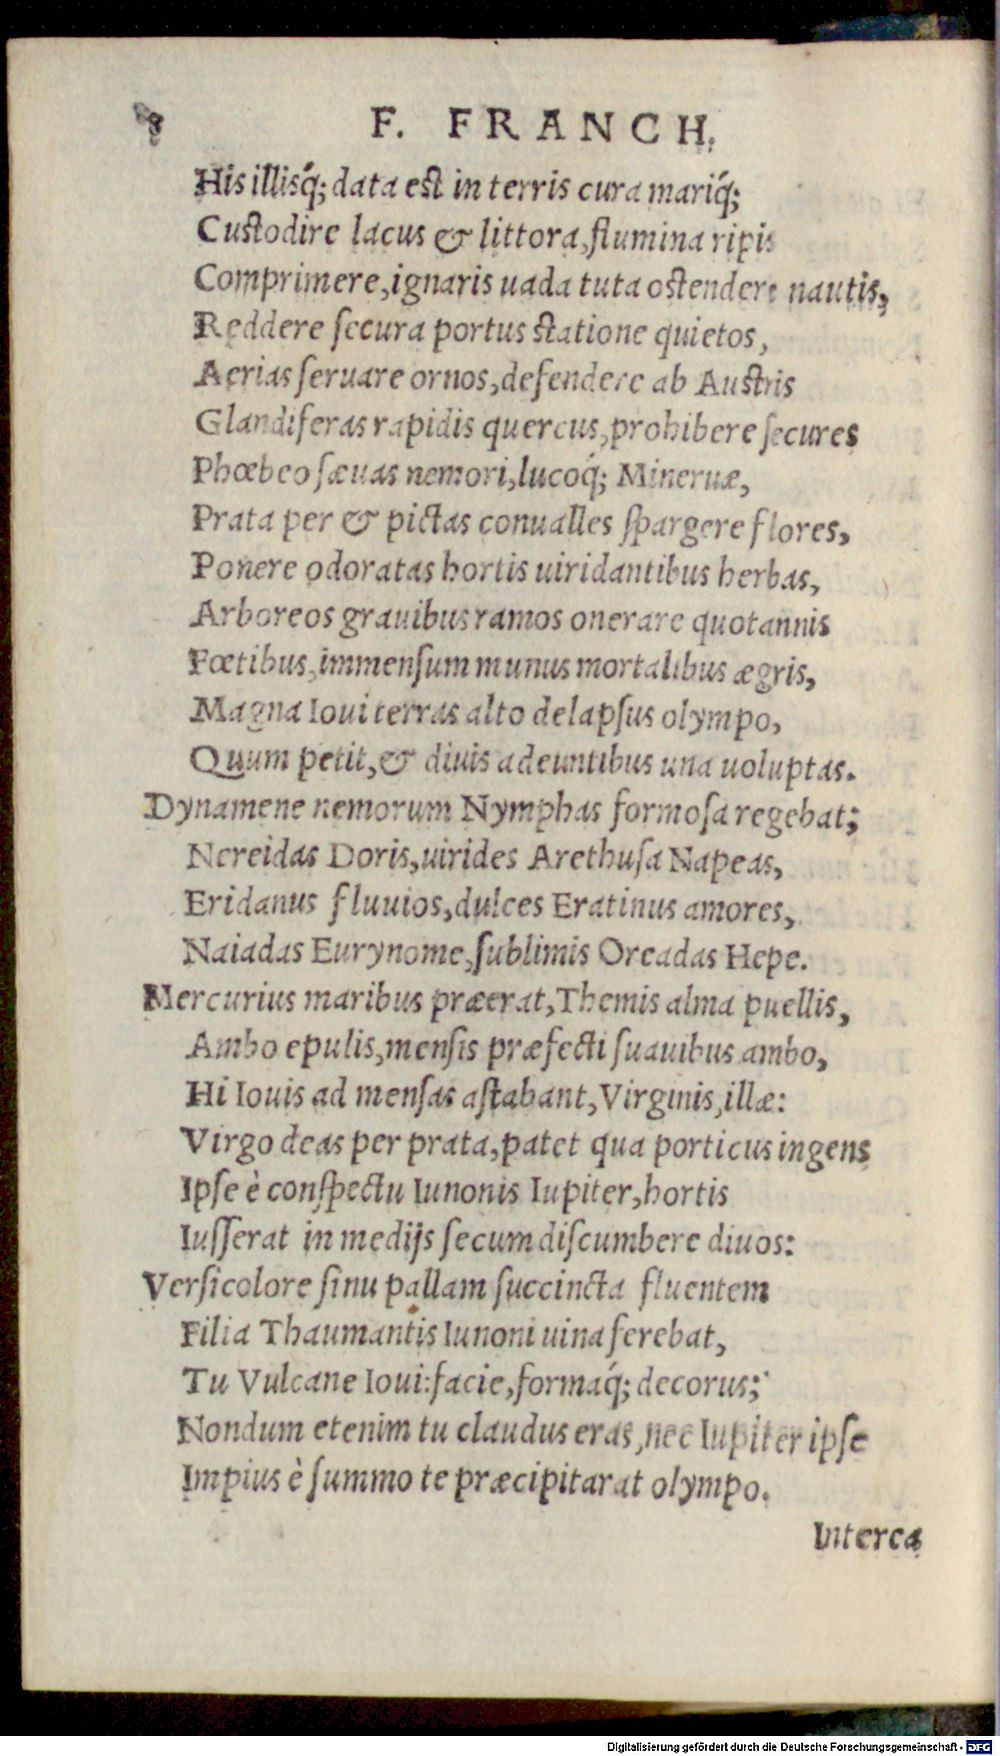 8 F. FRANCH.
His illisq́; data est in terris cura mariq́;
Custodire lacus & littora, flumina ripis
Comprimere, ignaris uada tuta ostendere nautis,
Reddere secura portus statione quietos,
Aerias seruare ornos, defendere ab Austris
Glandiferas rapidis quercus, prohibere secures
Phœbeo sæuas nemori, lucoq́; Mineruæ,
Prata per & pictas conualles spargere flores,
Ponere odoratas hortis uiridantibus herbas,
Arboreos grauibus ramos onerare quotannis
Fœtibus, immensum munus mortalibus ægris,
Magna Ioui terras alto delapsus olympo,
Quum petit, & diuis adeuntibus una uoluptas.
Dynamene nemorum Nymphas formosa regebat;
Nereidas Doris, uirides Arethusa Napeas,
Eridanus fluuios, dulces Eratinus amores,
Naiadas Eurynome, sublimis Oreadas Hepe.
Mercurius maribus præerat, Themis alma puellis,
Ambo epulis, mensis præfecti suauibus ambo,
Hi Iouis ad mensas astabant, Virginis, illæ:
Virgo deas per prata, patet qua porticus ingens
Ipse è conspectu Iunonis Iupiter, hortis
Iusserat in medijs secum discumbere diuos:
Versicolore sinu pallam succincta fluentem
Filia Thaumantis Iunoni uina ferebat,
Tu Vulcane Ioui: facie, formaq́; decorus;
Nondum etenim tu claudus eras, nec Iupiter ipse
Impius è summo te præcipitarat olympo.
Interea
Digitalisierung gefördert durch die Deutsche Forschungsgemeinschaft - DFG